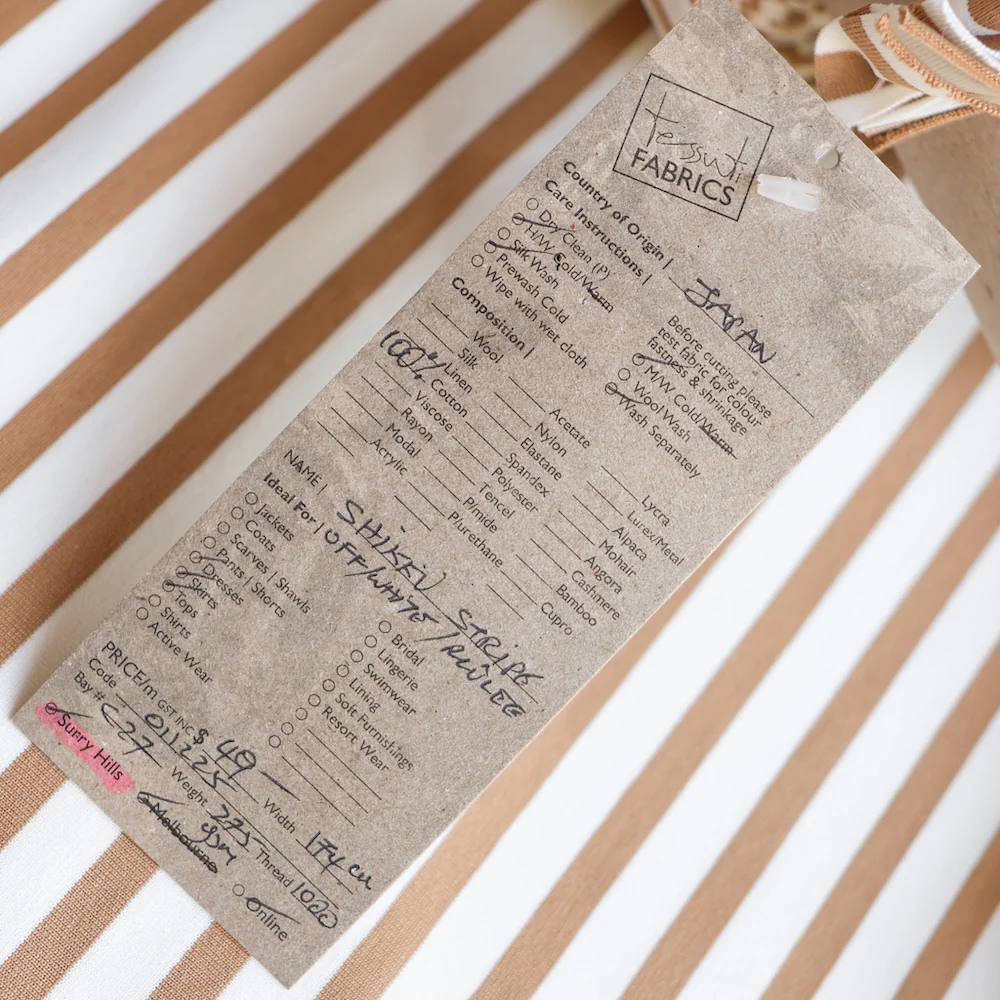 tessuti
FABRICS
Country of Origin | JAPAN
Care Instructions |
Dry Clean (P)
H/W Cold/Warm
Silk Wash
Prewash Cold
Wipe with wet cloth
Before cutting please
test fabric for colour
fastness & shrinkage
M/W Cold/Warm
Wool Wash
Wash Separately
Composition |
Wool
Silk
Linen
100% Cotton
Viscose
Rayon
Modal
Acrylic
Acetate
Nylon
Elastane
Spandex
Polyester
Tencel
P/mide
P/urethane
Lycra
Lurex/Metal
Alpaca
Mohair
Angora
Cashmere
Bamboo
Cupro
NAME | SHIKEN STRIPE
OFF/WHITE /
Ideal For |
Jackets
Coats
Scarves | Shawls
Pants | Shorts
Dresses
Skirts
Tops
Shirts
Active Wear
Bridal
Lingerie
Swimwear
Lining
Soft Furnishings
Resort Wear
PRICE/m GST INC $ 49 —
Code 011225 Width 174 cm
Bay # C27 Weight 275 gsm Thread 1000
Surry Hills
Melbourne
Online